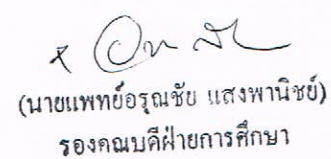 (นายแพทย์อรุณชัย แสงพานิชย์)
รองคณบดีฝ่ายการศึกษา